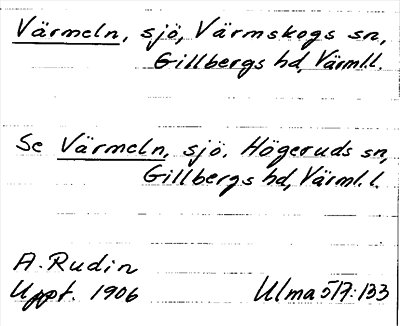 Värmeln, sjö, Värmskogs sn,
Gillbergs hd, Värml.l.
Se Värmeln, sjö. Högeruds sn,
Gillbergs hd, Värml.l.
A. Rudin
Uppt. 1906 Ulma 517:133